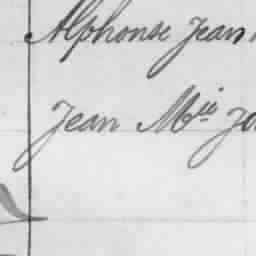 Alphonse Jean
Jean Mie